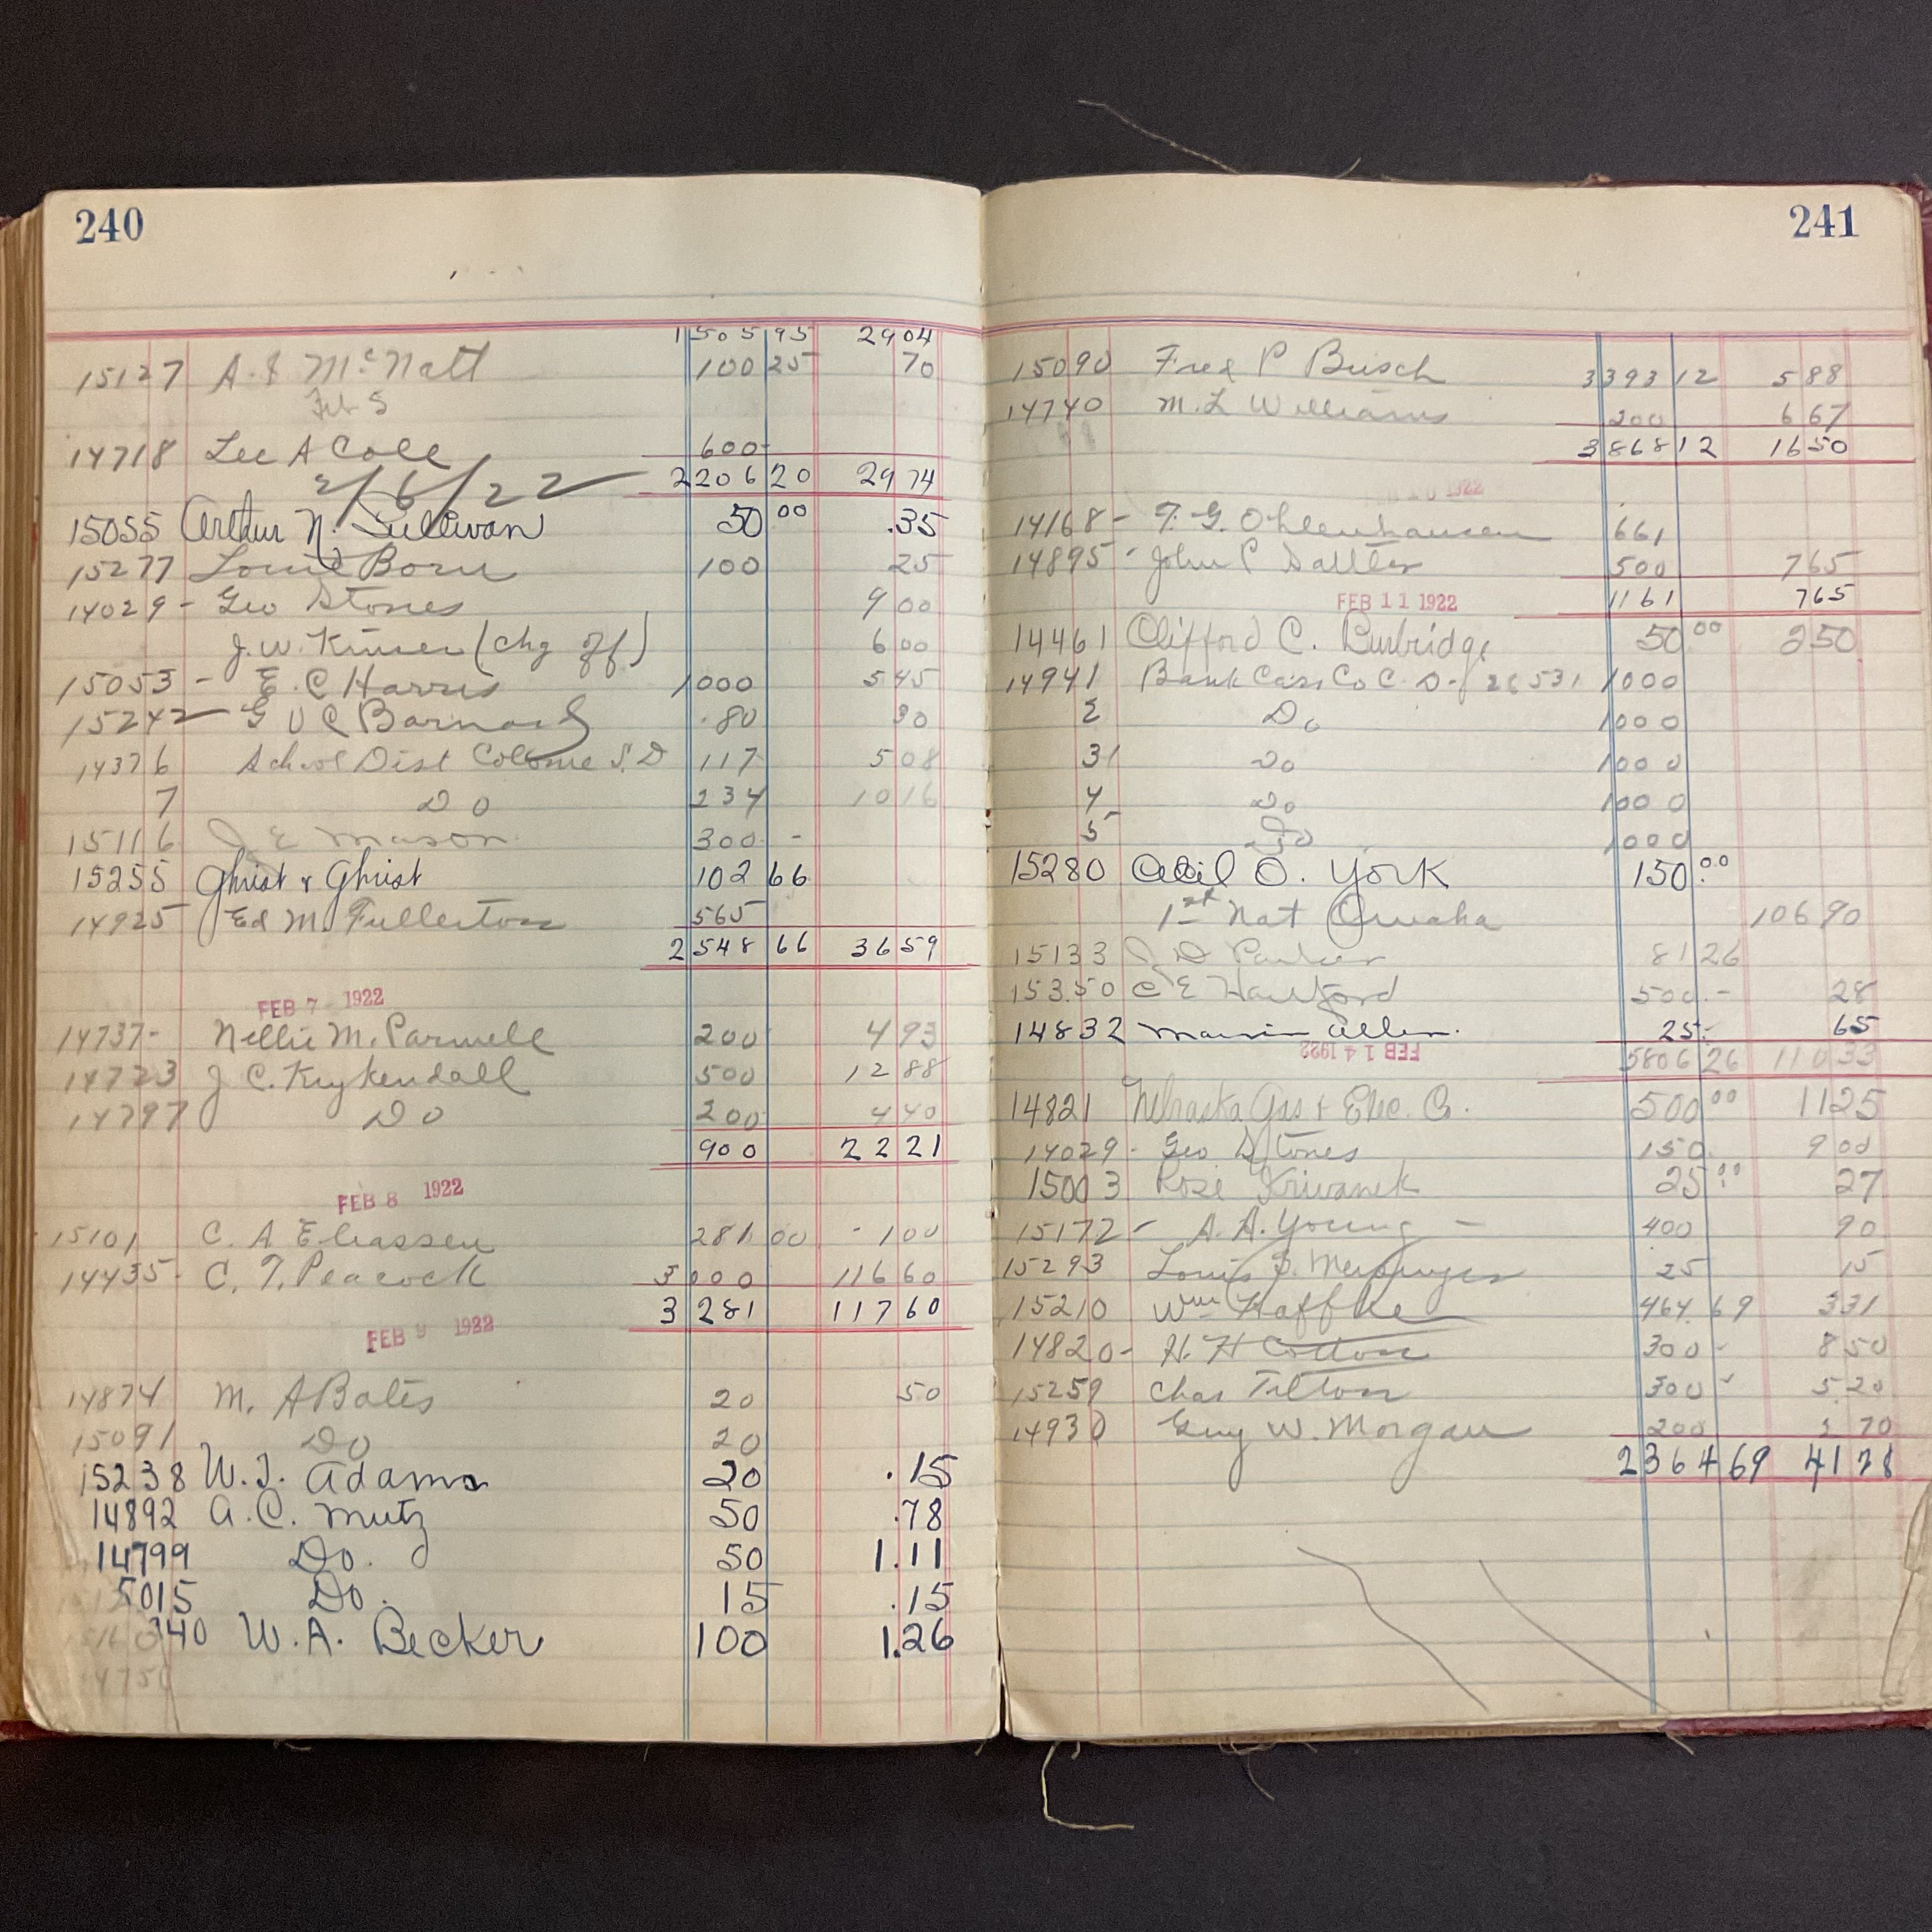 240
1505 95 2904
15127 A. & McNatt 100 25 70
Feb 5
14718 Lee A Cole 600-
2206 20 2974
2/6/22
15055 Arthur N. Sullivan 50 00 .35
15277 Louie Born 100 25
14029 - Geo Stones 900
J. W. Kinser (Chg off) 600
15053 - E. C Harris 1000 545
15242 - G U C Barnard .80 30
14376 School Dist Colome S. D 117 508
7 Do 234 1016
15116 J E Mason 300 -
15255 Ghrist & Ghrist 102 66
14925 Ed M. Fullerton 565
2548 66 3659
FEB 7 1922
14737- Nellie M. Parmele 200 493
14723 J C. Kuykendall 500 1288
14797 Do 200 440
900 2221
FEB 8 1922
15101 C. A Eliassen 281 00 - 100
14435- C. T. Peacock 3000 11660
3281 11760
FEB 9 1922
14874 M. A Bates 20 50
15091 Do 20
15238 W. J. Adams 20 .15
14892 A. C. Mutz 50 .78
14799 Do. 50 1.11
15015 Do. 15 .15
340 W. A. Becker 100 1.26
14750
241
15090 Fred P Busch 3393 12 588
14740 M. L Williams 200 667
3868 12 1650
1922
14168 - T. G. Ohlenhausen 661
14895 - John P Sattler 500 765
FEB 11 1922 1161 765
14461 Clifford C. Burbridge 50.00 250
14941 Bank Cass Co C. D. 26531 1000
2 Do 1000
3 Do 1000
4 Do 1000
5 Do 1000
15280 Cecil O. York 150.00
1st Nat Omaha 10690
15133 J D Parker 81 26
153.50 C E Hartford 500.- 28
14832 Allen. 25.- 65
FEB 14 1922 5806 26 11033
14821 Nebraska Gas & Elec. Co. 500 00 1125
14029 - Geo Stones 150 900
15003 Rose Krivanek 25.00 27
15172 - A. A. Young - 400 90
15293 Louis 25 15
15210 Wm Haffke 464.69 331
14820- H. H Cotton 300- 850
15259 Chas Tilton 300 520
14930 Guy W. Morgan 200 370
2364 69 4128